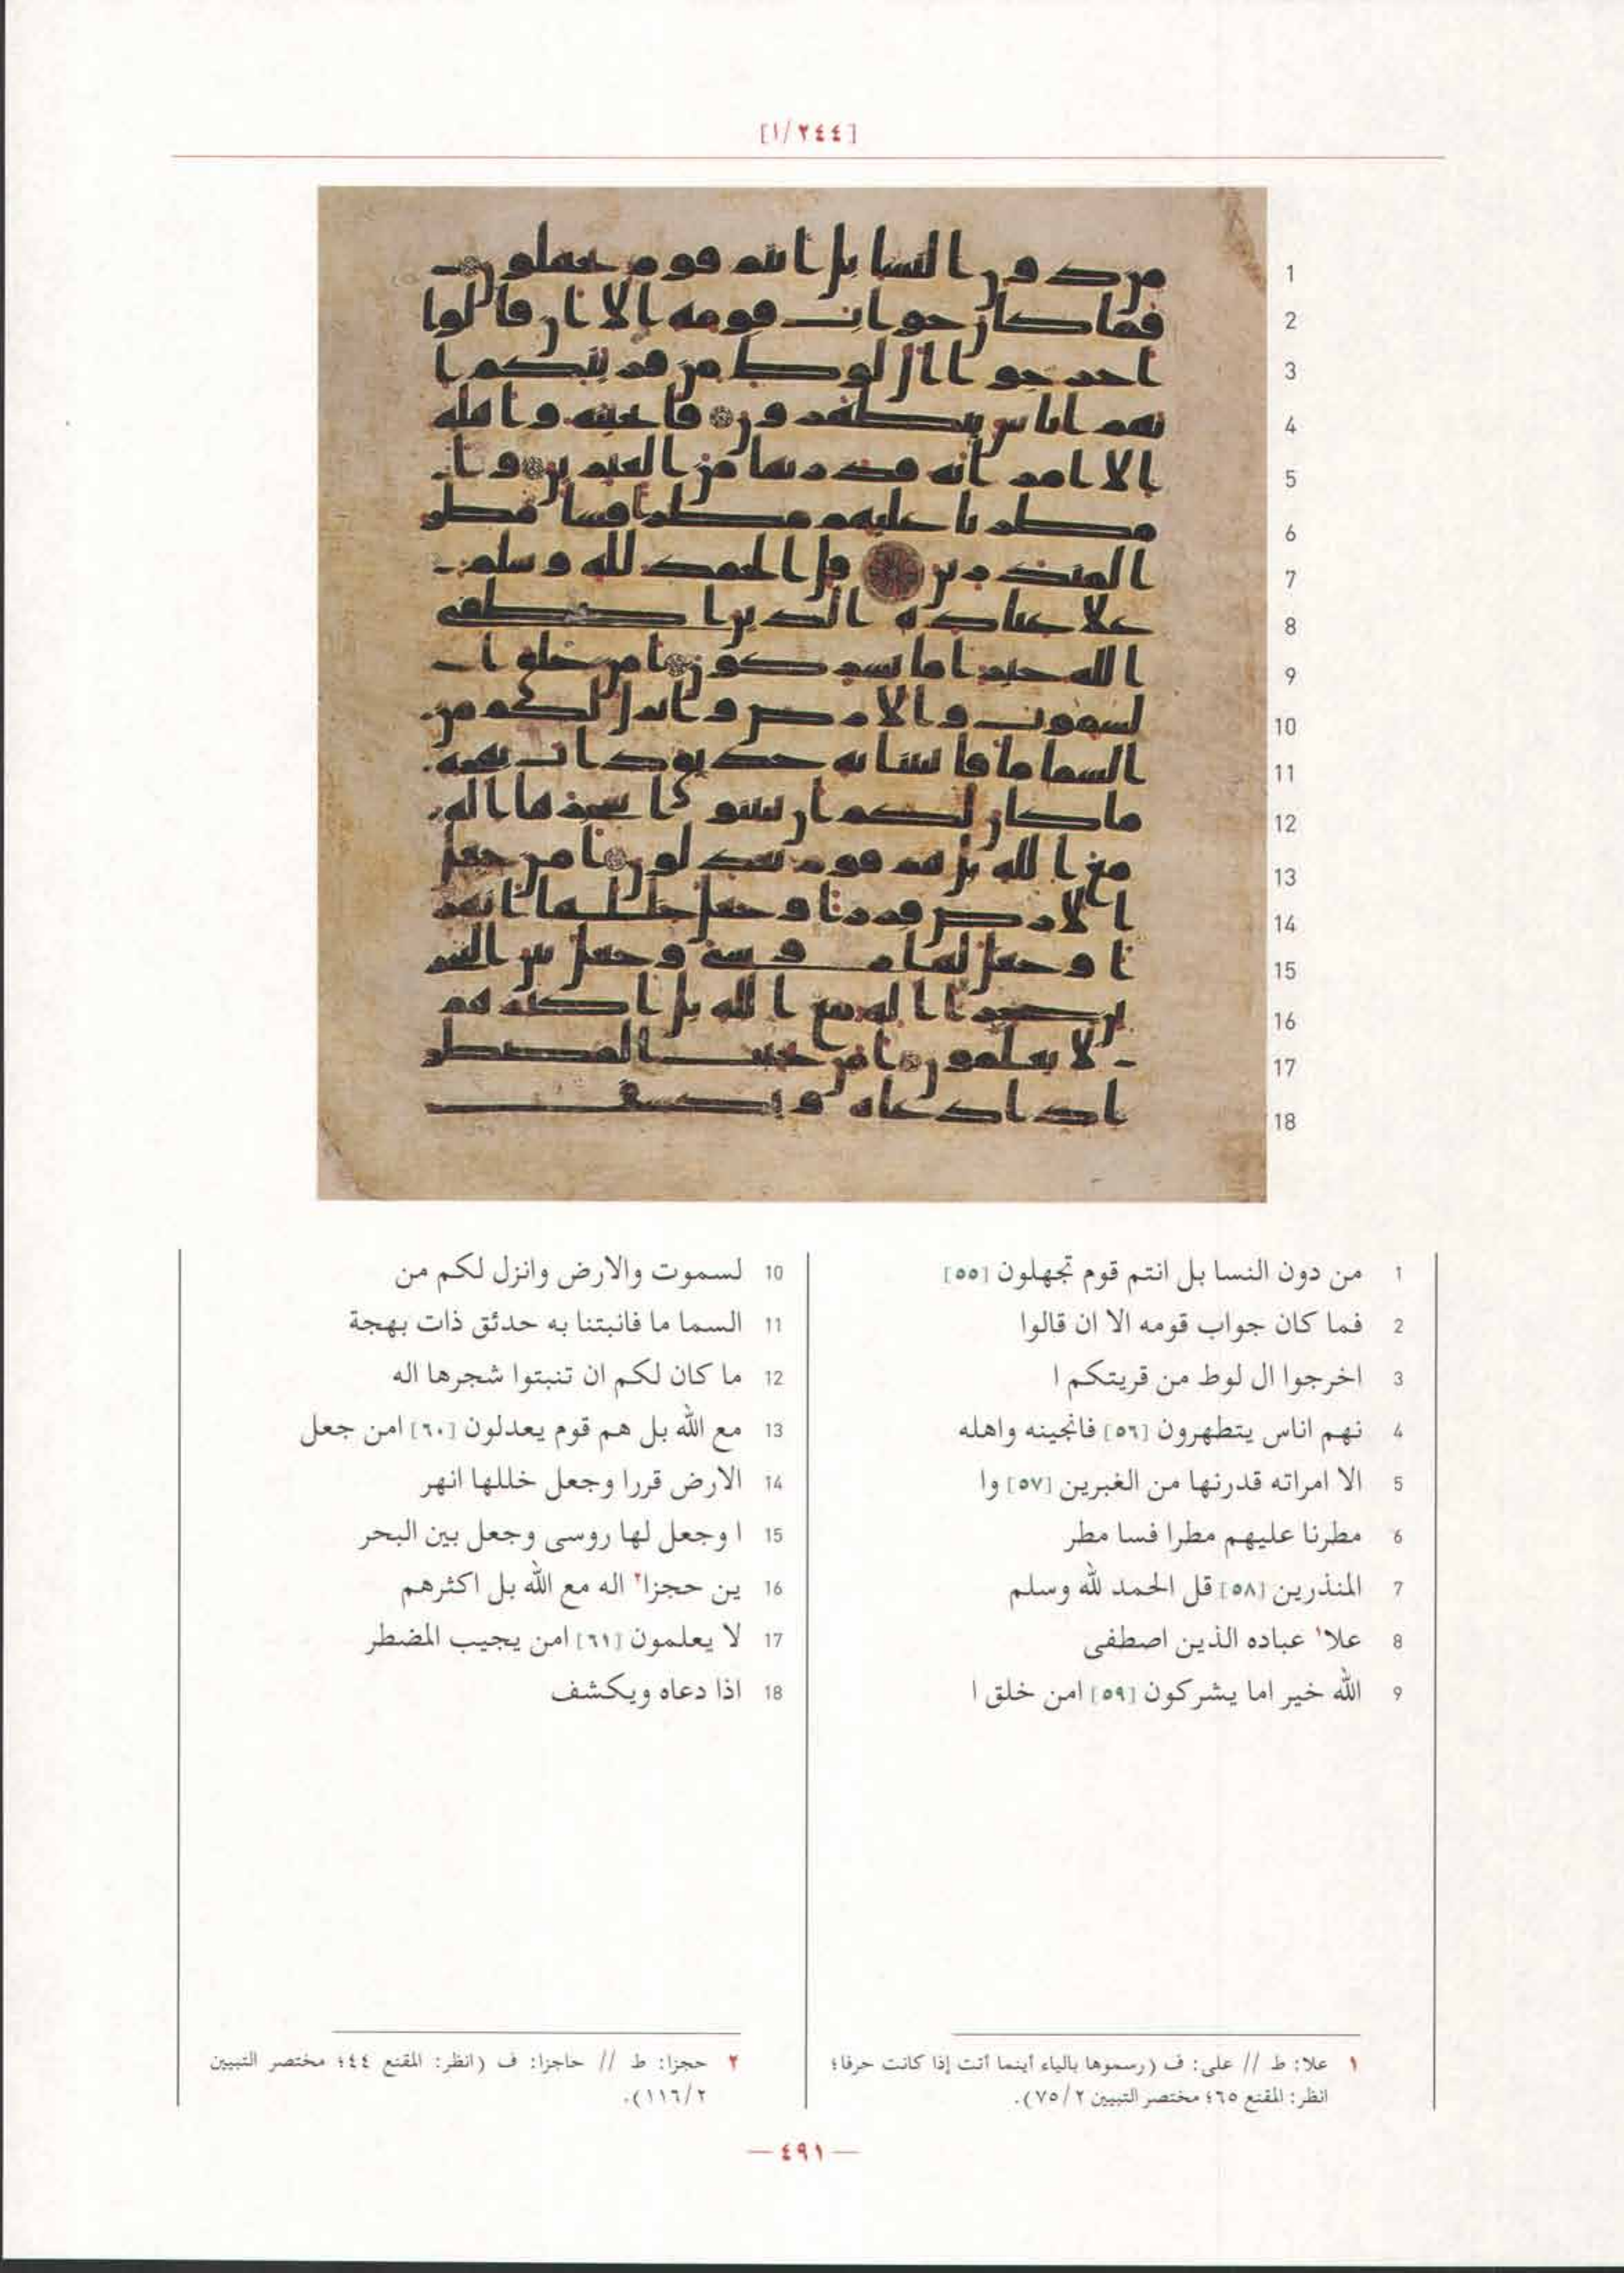 [١/٢٤٤]
1 من دون النسا بل انتم قوم تجهلون [٥٥]
2 فما كان جواب قومه الا ان قالوا
3 اخرجوا ال لوط من قريتكم ا
4 نهم اناس يتطهرون [٥٦] فانجينه واهله
5 الا امراته قدرنها من الغبرين [٥٧] وا
6 مطرنا عليهم مطرا فسا مطر
7 المنذرين [٥٨] قل الحمد لله وسلم
8 علا١ عباده الذين اصطفى
9 الله خير اما يشركون [٥٩] امن خلق ا
10 لسموت والارض وانزل لكم من
11 السما ما فانبتنا به حدئق ذات بهجة
12 ما كان لكم ان تنبتوا شجرها اله
13 مع الله بل هم قوم يعدلون [٦٠] امن جعل
14 الارض قررا وجعل خللها انهر
15 ا وجعل لها روسى وجعل بين البحر
16 ين حجزا٢ اله مع الله بل اكثرهم
17 لا يعلمون [٦١] امن يجيب المضطر
18 اذا دعاه ويكشف
١ علا: ط // على: ف (رسموها بالياء أينما أتت إذا كانت حرفا؛
انظر: المقنع ٦٥؛ مختصر التبيين ٧٥/٢).
٢ حجزا: ط // حاجزا: ف (انظر: المقنع ٤٤؛ مختصر التبيين
١١٦/٢).
— ٤٩١ —